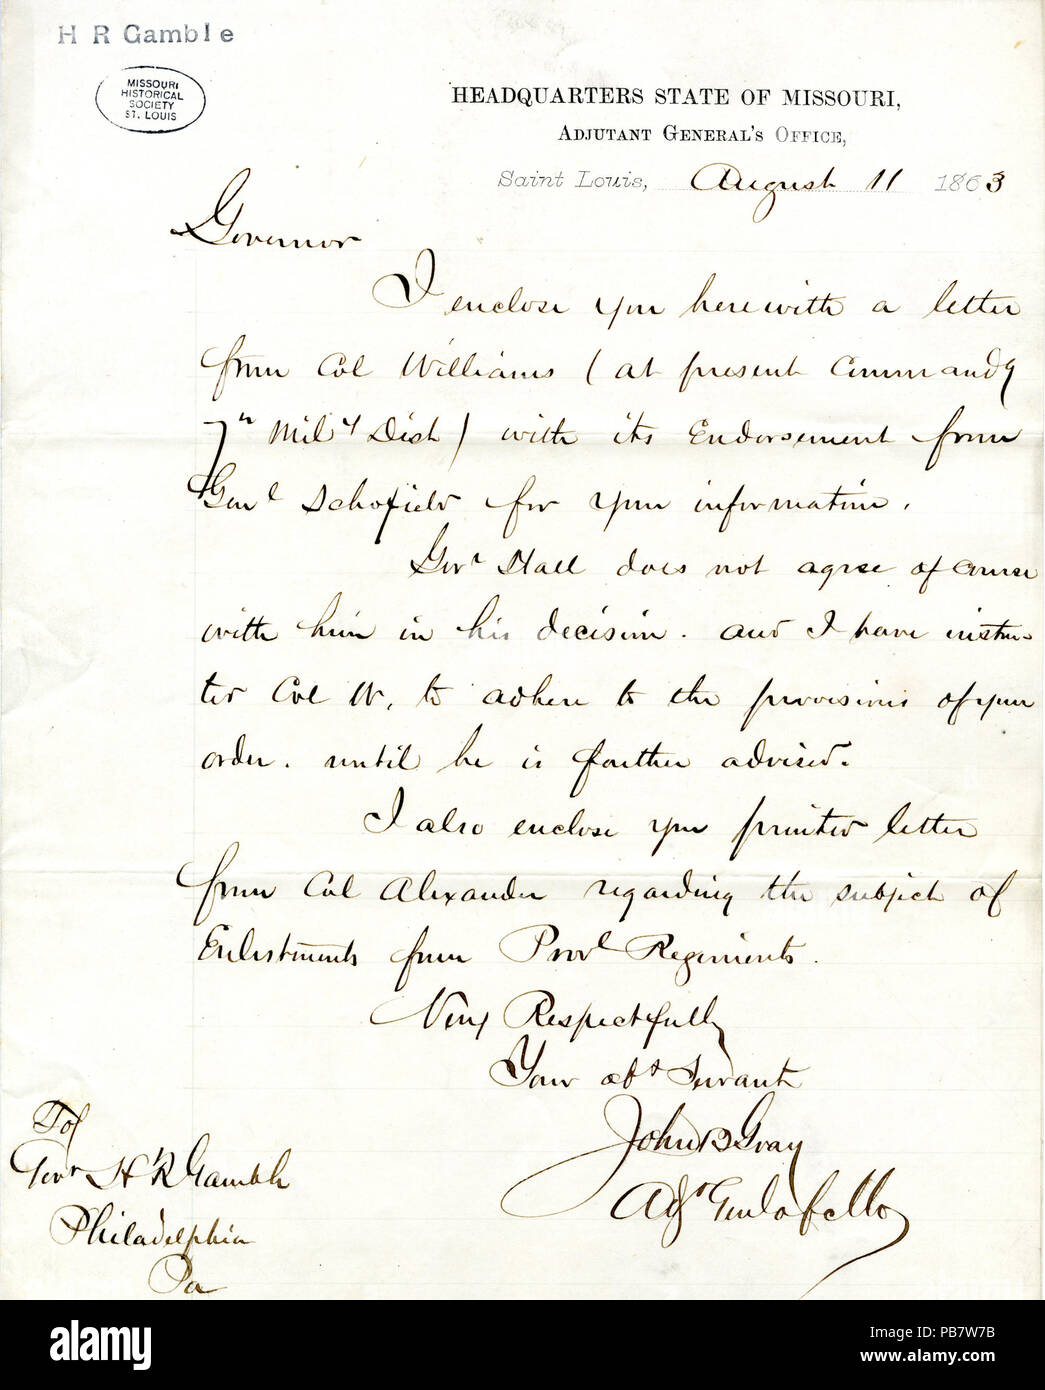 H R Gamble
MISSOURI
HISTORICAL
SOCIETY
ST. LOUIS
HEADQUARTERS STATE OF MISSOURI,
ADJUTANT GENERAL'S OFFICE,
Saint Louis, August 11 1863
Governor
I enclose you herewith a letter
from Col Williams (at present Commandg
7th Mily Dist) with its Endorsement from
Genl Schofield for your information.
Govr Hall does not agree of course
with him in his decision. and I have instruc-
ted Col W. to adhere to the provisions of your
order. until he is further advised.
I also enclose you printed letter
from Col Alexander regarding the subject of
Enlistments from Provl Regiments.
Very Respectfully
Your obt Servant
John B Gray
Adjt Genl of Mo
To
Govr H R Gamble
Philadelphia
Pa
alamy
Image ID: PB7W7B
www.alamy.com